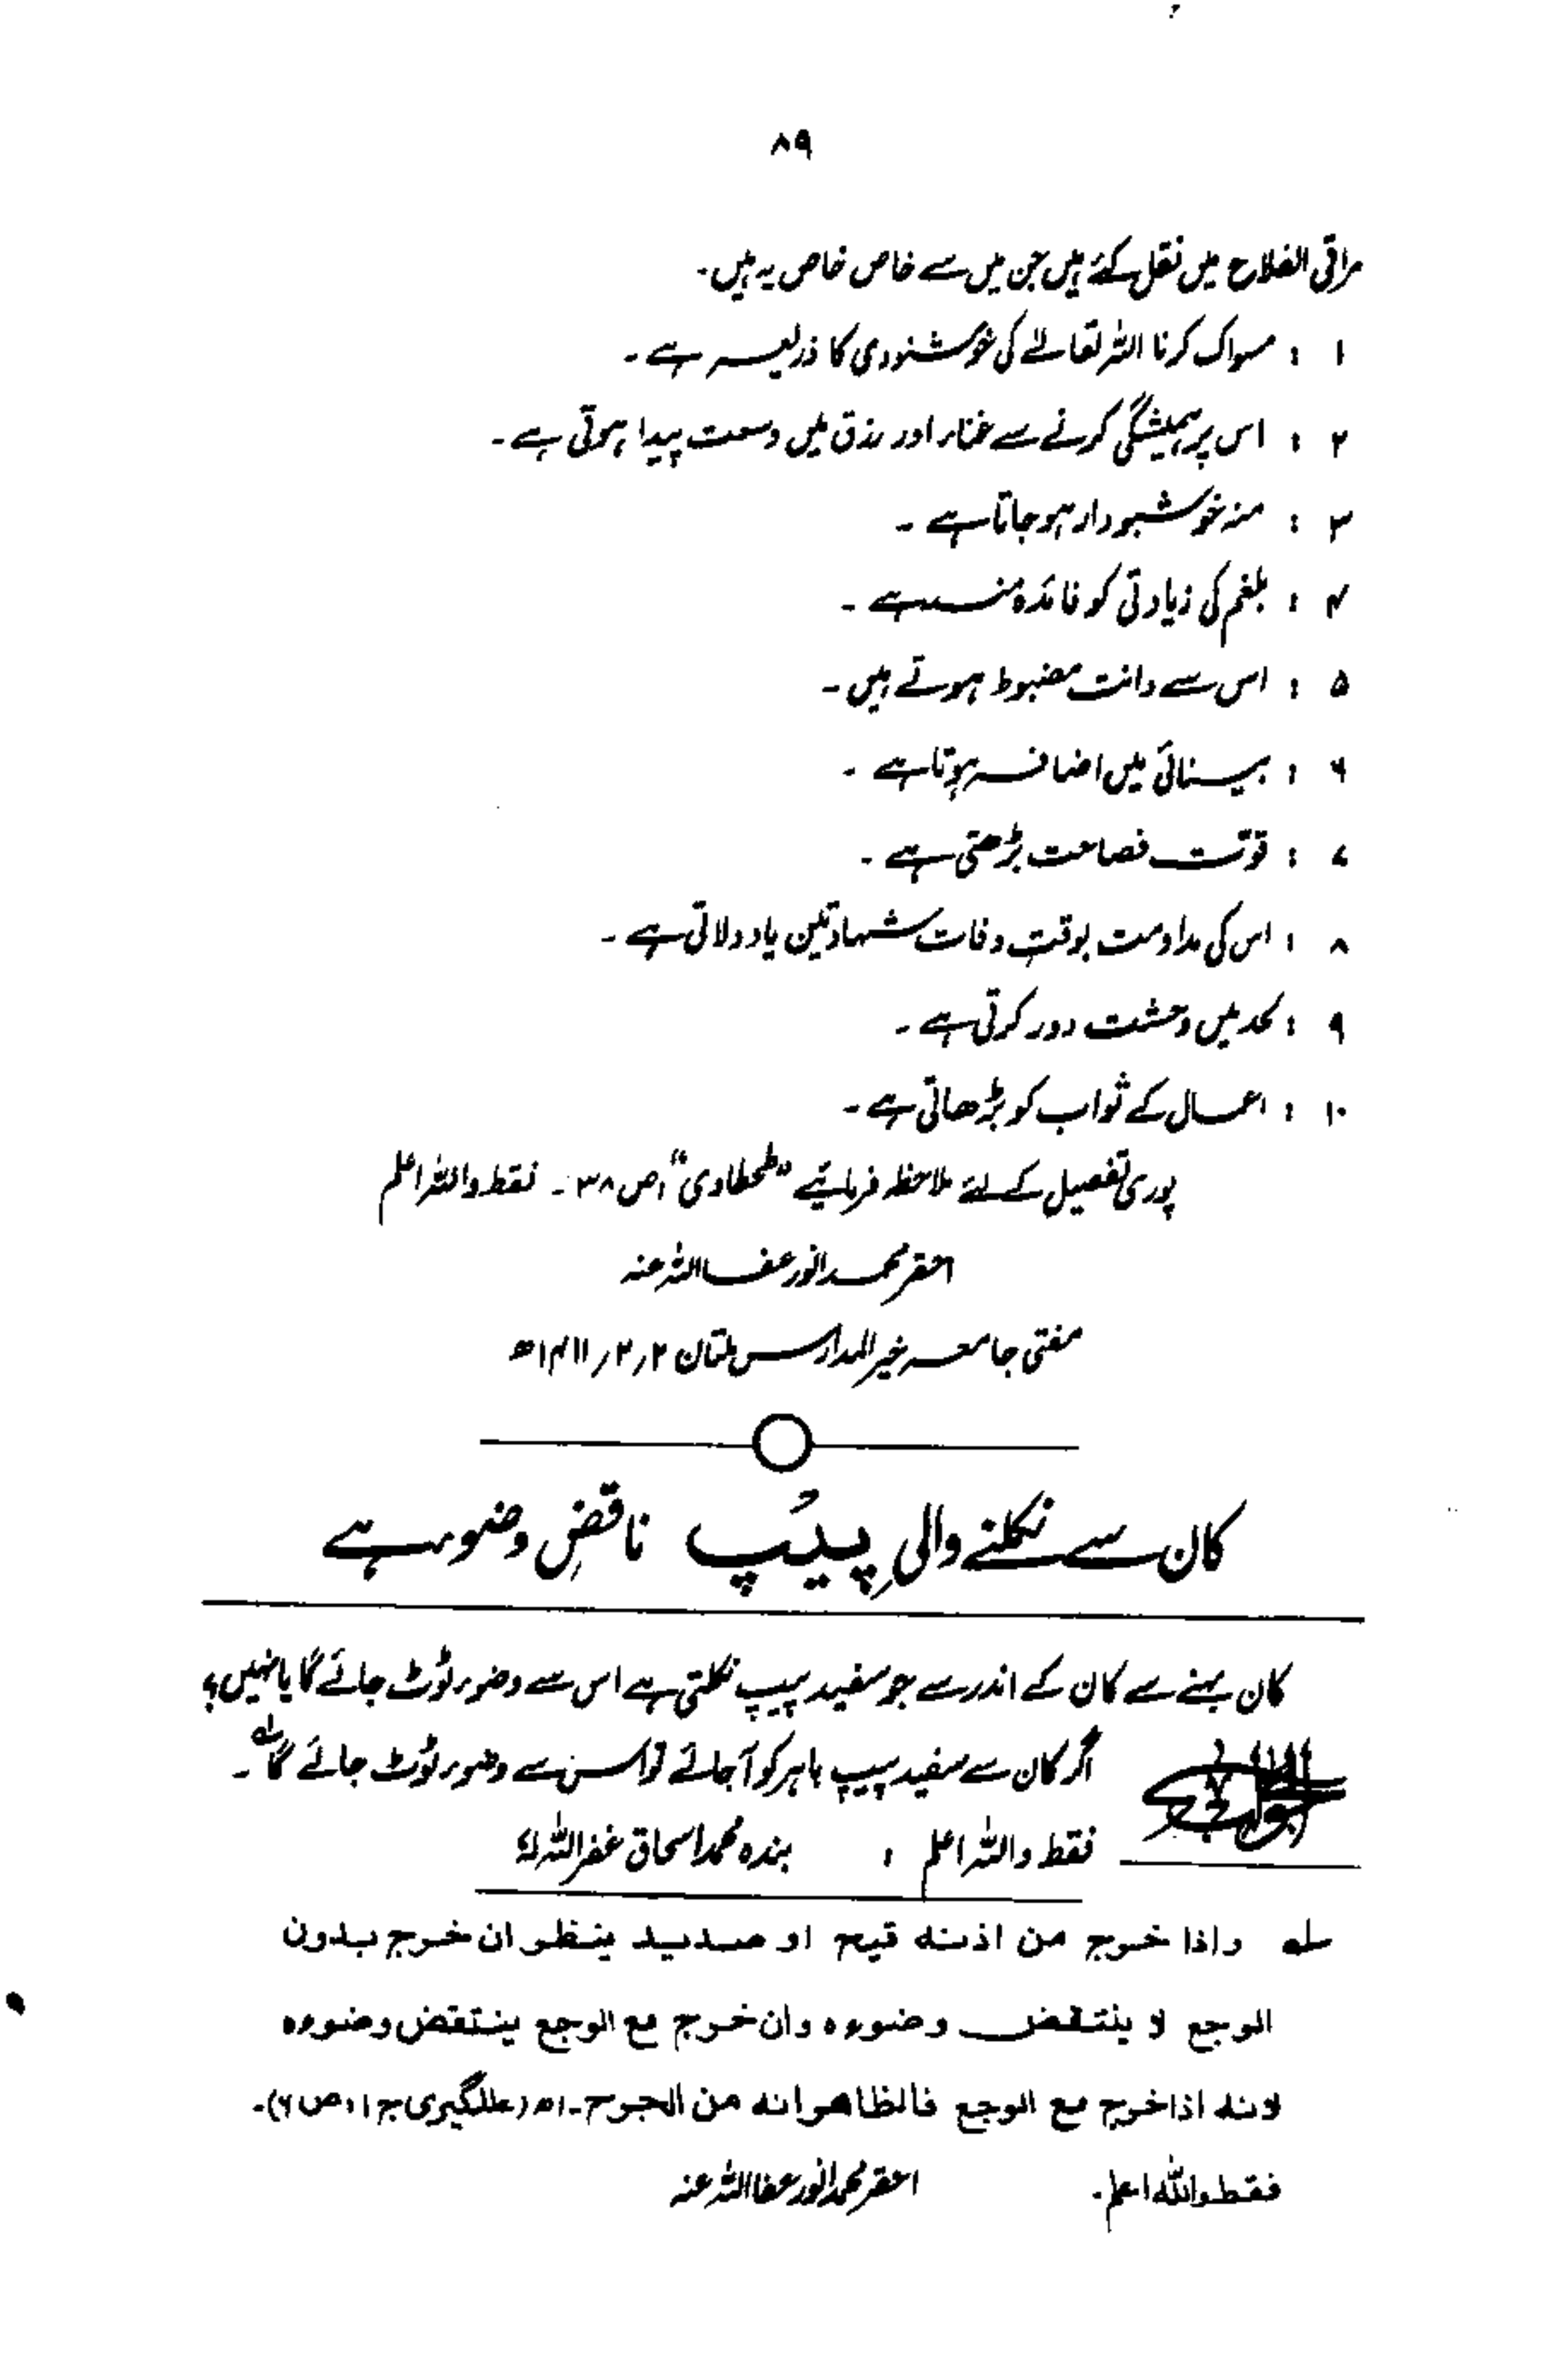 ۸۹
مراقی الفلاح میں نقل کئے ہیں جن میں سے خاص خاص یہ ہیں۔
۱ : مسواک کرنا اللہ تعالےٰ کی خوشنودی کا ذریعہ ہے۔
۲ : اس پر ہمیشگی کرنے سے غناء اور رزق میں وسعت پیدا ہوتی ہے۔
۳ : منہ خوشبودار ہو جاتا ہے۔
۴ : بلغم کی زیادتی کو فائدہ مند ہے۔
۵ : اس سے دانت مضبوط ہوتے ہیں۔
۶ : بینائی میں اضافہ ہوتا ہے۔
۷ : قوّت فصاحت بڑھتی ہے۔
۸ : اس کی مداومت بوقتِ وفات شہادتین یاد دلاتی ہے۔
۹ : لحد میں وحشت دور کرتی ہے۔
۱۰ : اعمال کے ثواب کو بڑھاتی ہے۔
پوری تفصیل کے لئے ملاحظہ فرمائیے "طحطاوی"، ص ۳۸۔ فقط واللہ اعلم
احقر محمد انور عفا اللہ عنہ
مفتی جامعہ خیر المدارس ملتان ۲؍۲؍۱۴۱۱ھ
کان سے نکلنے والی پیپ ناقضِ وضوء ہے
کان بہنے سے کان کے اندر سے جو سفید پیپ نکلتی ہے اس سے وضوء ٹوٹ جائے گا یا نہیں؟
الجواب اگر کان سے سفید پیپ باہر کو آجائے تو اس سے وضوء ٹوٹ جائے گا لہ۔
فقط واللہ اعلم : بندہ محمد اسحاق غفر اللہ لہٗ
لہ واذا خرج من اذنه قیح او صدید ینظر ان خرج بدون
الوجع لا ینتقض وضوءہ وان خرج مع الوجع ینتقض وضوءہ
لانه اذا خرج مع الوجع فالظاهر انه من الجرح۔ اھ (عالمگیری ج۱، ص۶)۔
فقط واللہ اعلم۔ احقر محمد انور عفا اللہ عنہ